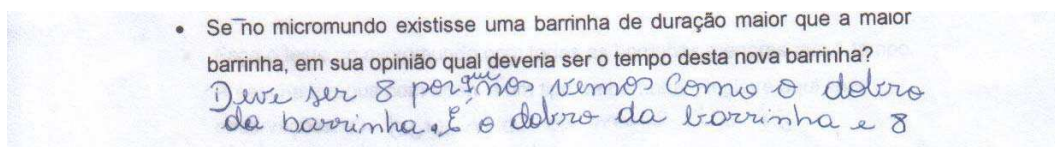 • Se no micromundo existisse uma barrinha de duração maior que a maior
barrinha, em sua opinião qual deveria ser o tempo desta nova barrinha?
Deve ser 8 porque nos vemos como o dobro
da barrinha. É o dobro da barrinha e 8